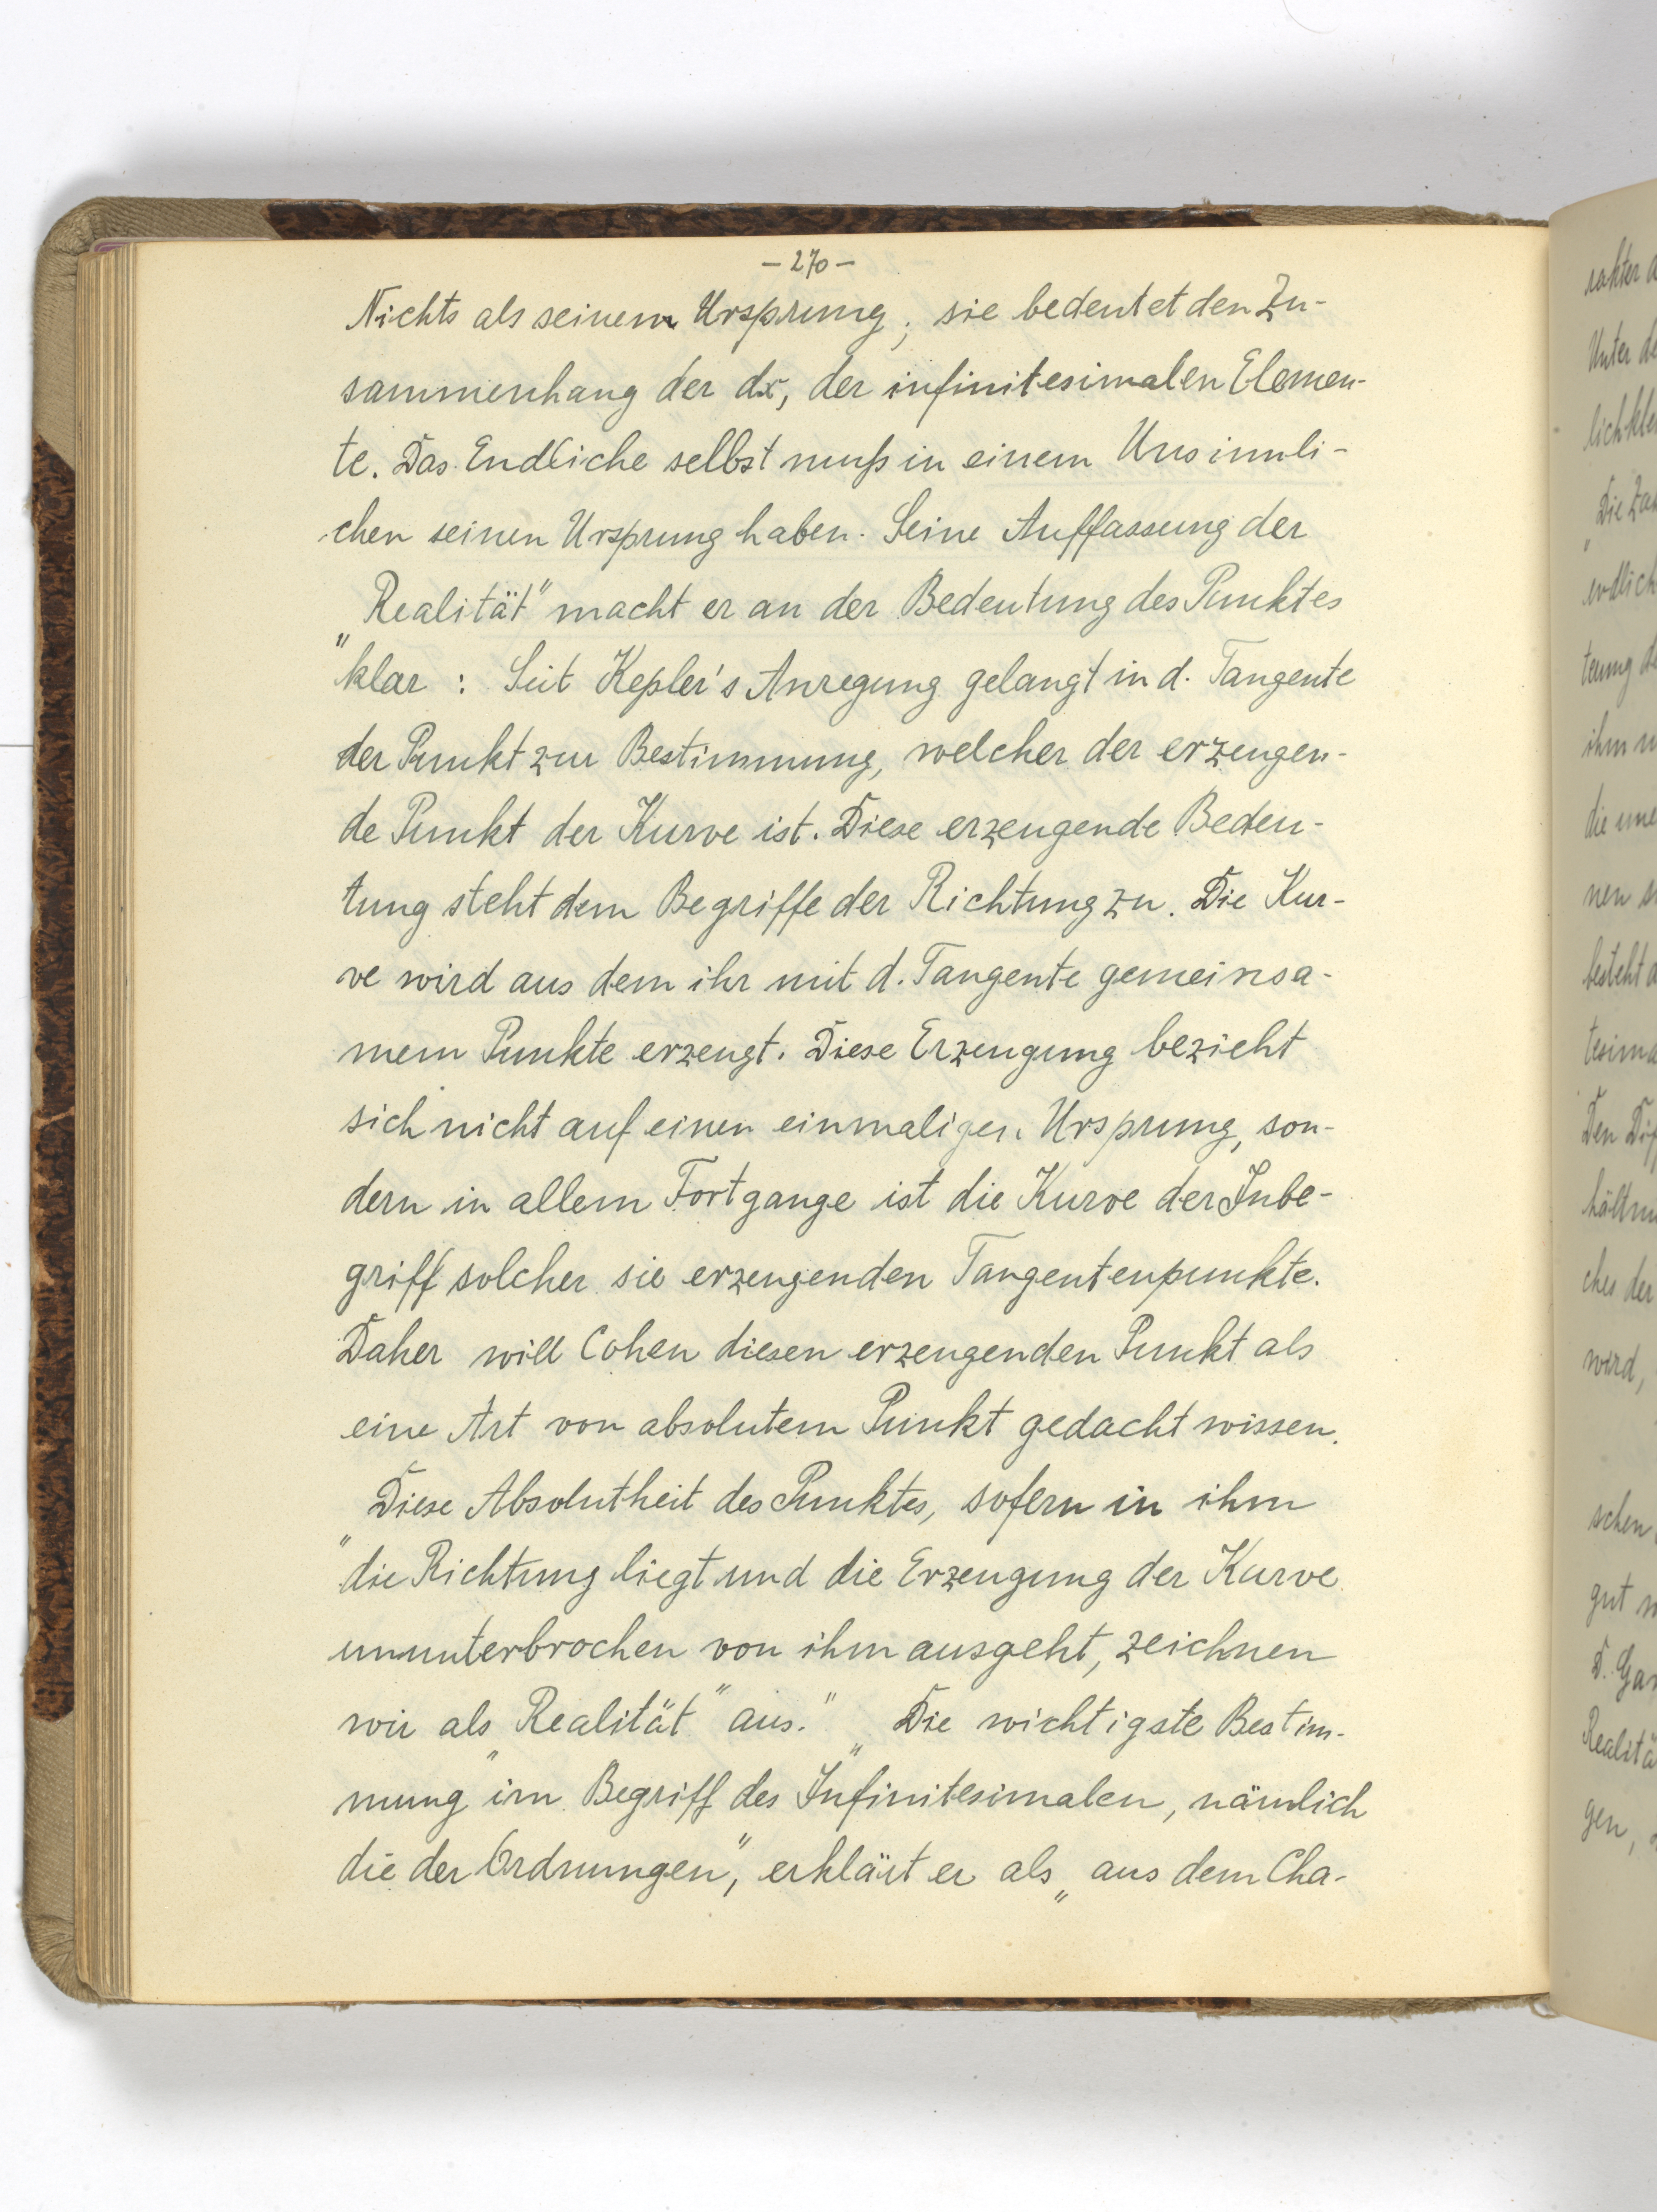 – 270 –
Nichts als seinem Ursprung; sie bedeutet den Zu-
sammenhang der dx, der infinitesimalen Elemen-
te. Das Endliche selbst muß in einem Unsinnli-
chen seinen Ursprung haben. Seine Auffassung der
„Realität“ macht er an der Bedeutung des Punktes
klar : Seit Kepler's Anregung gelangt in d. Tangente
der Punkt zur Bestimmung, welcher der erzeugen-
de Punkt der Kurve ist. Diese erzeugende Bedeu-
tung steht dem Begriffe der Richtung zu. Die Kur-
ve wird aus dem ihr mit d. Tangente gemeinsa-
mem Punkte erzeugt. Diese Erzeugung bezieht
sich nicht auf einen einmaligen Ursprung, son-
dern in allem Fortgange ist die Kurve der Inbe-
griff solcher sie erzeugenden Tangentenpunkte.
Daher will Cohen diesen erzeugenden Punkt als
eine Art von absolutem Punkt gedacht wissen.
„Diese Absolutheit des Punktes, sofern in ihm
die Richtung liegt und die Erzeugung der Kurve
ununterbrochen von ihm ausgeht, zeichnen
wir als „Realität“ aus.“ „Die wichtigste Bestim-
mung im Begriff des „Infinitesimalen, nämlich
die der Ordnungen“, erklärt er als „aus dem Cha-